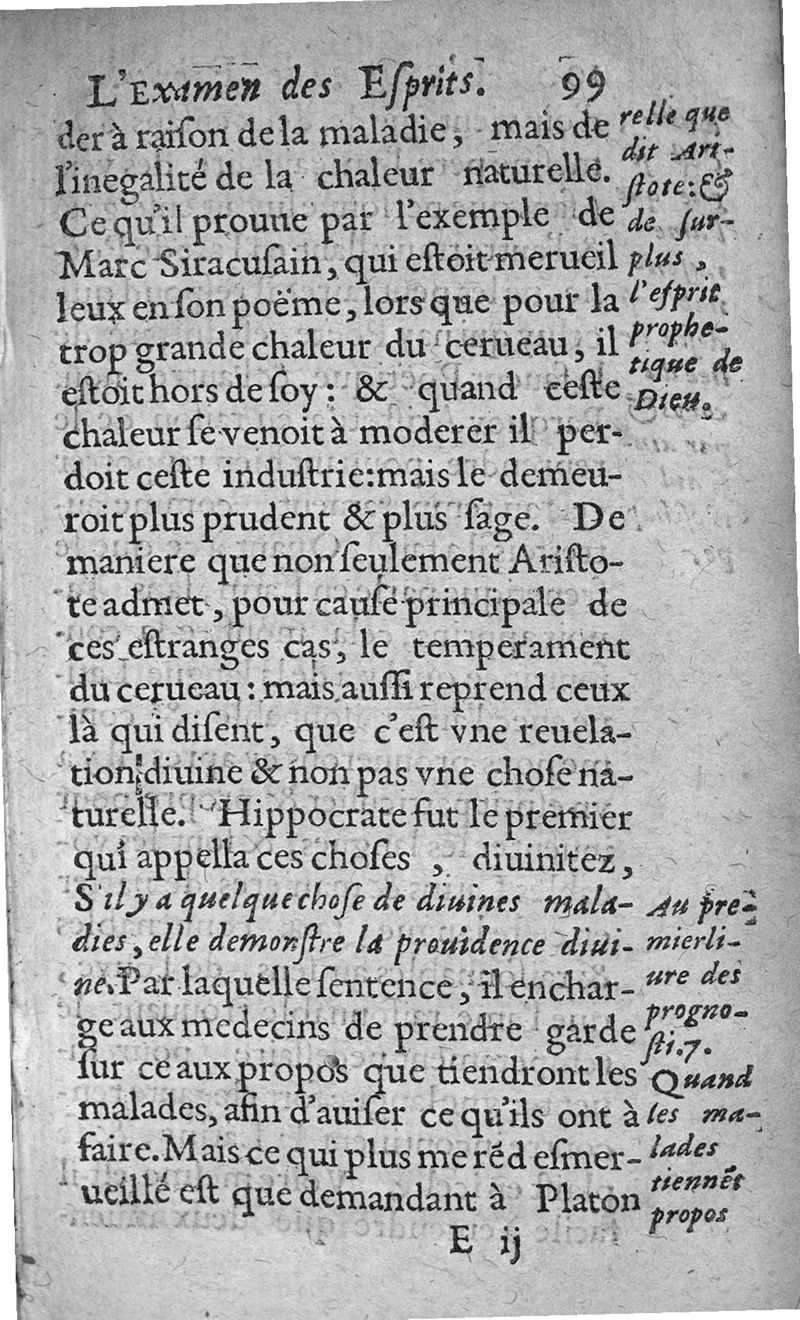 L'Examen des Eſprits. 99
der à raiſon de la maladie, mais de
l'inegalité de la chaleur naturelle.
Ce qu'il prouue par l'exemple de
Marc Siracuſain, qui eſtoit merueil
leux en ſon poëme, lors que pour la
trop grande chaleur du cerueau, il
eſtoit hors de ſoy : & quand ceſte
chaleur ſe venoit à moderer il per-
doit ceſte induſtrie: mais le demeu-
roit plus prudent & plus ſage. De
maniere que non ſeulement Ariſto-
te admet, pour cauſe principale de
ces eſtranges cas, le temperament
du cerueau : mais auſſi reprend ceux
là qui diſent, que c'eſt vne reuela-
tion diuine & non pas vne choſe na-
turelle. Hippocrate fut le premier
qui appella ces choſes , diuinitez,
S'il y a quelque choſe de diuines mala-
dies, elle demonſtre la prouidence diui-
ne. Par laquelle ſentence, il enchar-
ge aux medecins de prendre garde
ſur ce aux propos que tiendront les
malades, afin d'auiſer ce qu'ils ont à
faire. Mais ce qui plus me réd eſmer-
ueillé eſt que demandant à Platon
E ij
relle que
dit Ari-
ſtote: &
de ſur-
plus ,
l'eſprit
prophe-
tique de
Dieu.
Au pre-
mier li-
ure des
progno-
ſti. 7.
Quand
les ma-
lades
tiennēt
propos